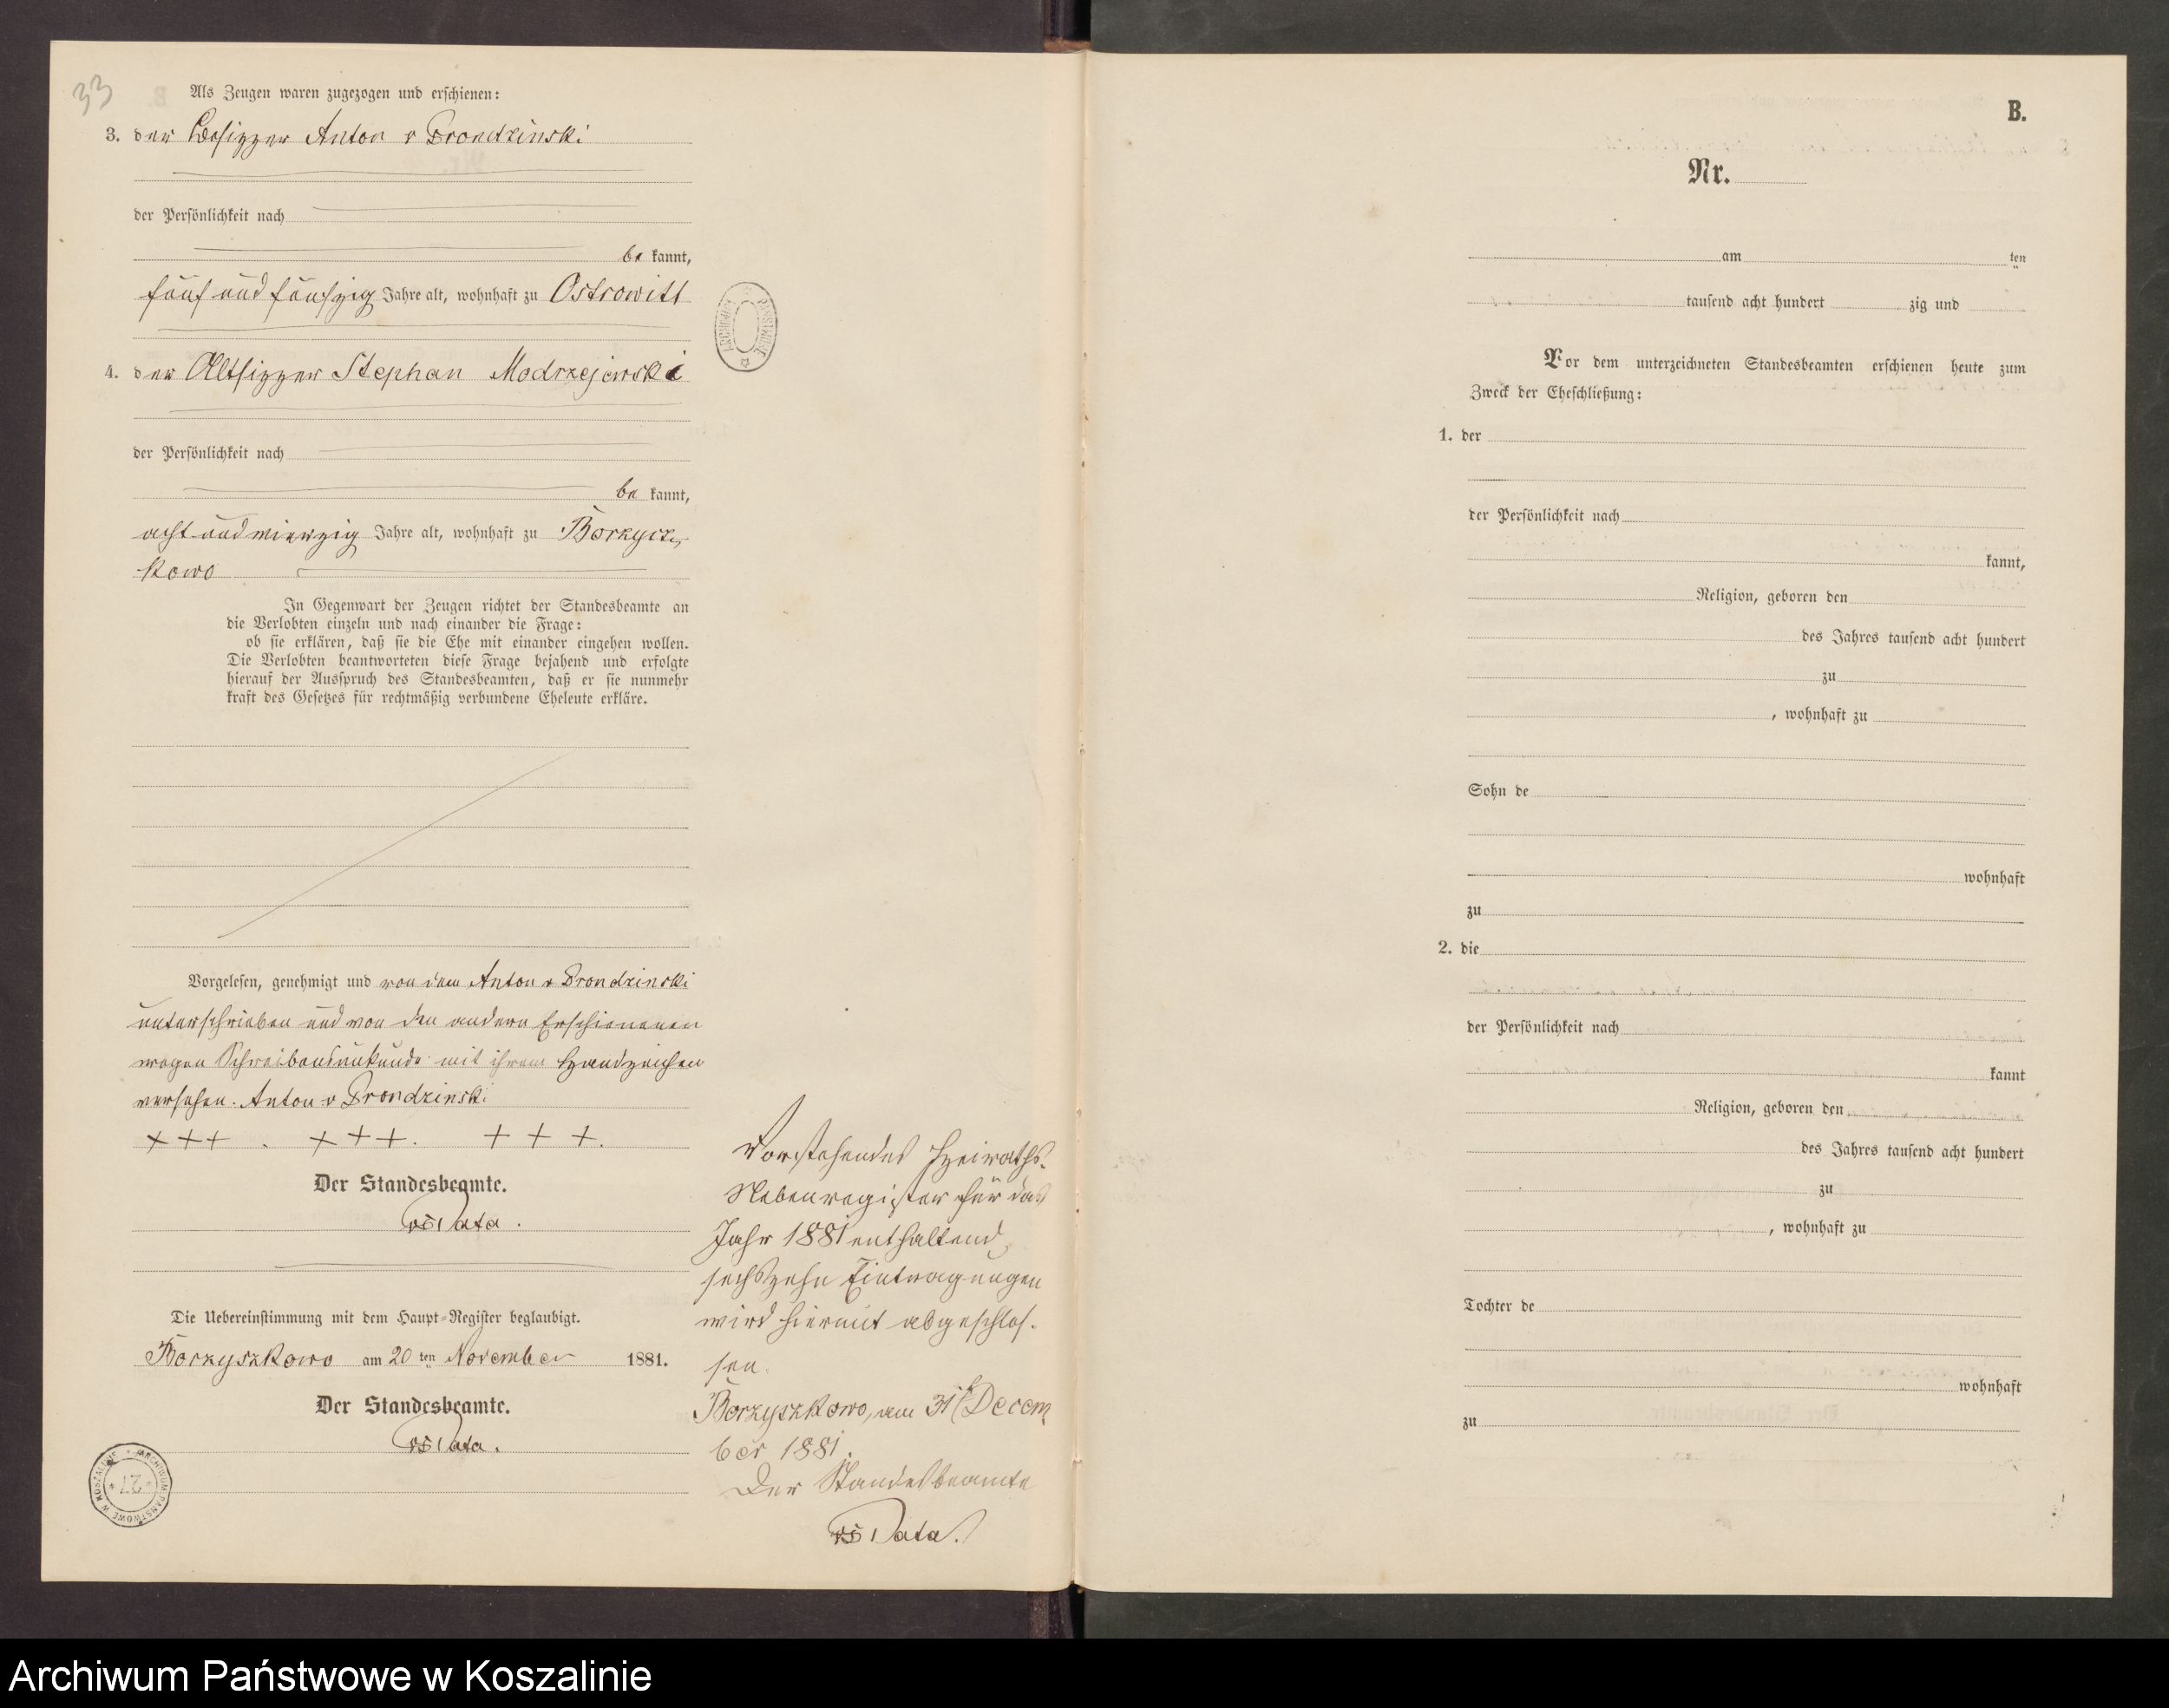 33
Als Zeugen waren zugezogen und erschienen:
3. der Besitzer Anton v Prondzinski
der Persönlichkeit nach
be kannt,
fünf und fünfzig Jahre alt, wohnhaft zu Ostrowitt
4. der Altsitzer Stephan Modrzejewski
der Persönlichkeit nach
be kannt,
acht und vierzig Jahre alt, wohnhaft zu Borzysz-
kowo
In Gegenwart der Zeugen richtet der Standesbeamte an
die Verlobten einzeln und nach einander die Frage:
ob sie erklären, daß sie die Ehe mit einander eingehen wollen.
Die Verlobten beantworteten diese Frage bejahend und erfolgte
hierauf der Ausspruch des Standesbeamten, daß er sie nunmehr
kraft des Gesetzes für rechtmäßig verbundene Eheleute erkläre.
Vorgelesen, genehmigt und von dem Anton v Prondzinski
unterschrieben und von den andern Erschienenen
wegen Schreibensunkunde mit ihrem Handzeichen
versehen. Anton v Prondzinski
+++ . +++. +++.
Der Standesbeamte.
Die Uebereinstimmung mit dem Haupt-Register beglaubigt.
Borzyszkowo am 20 ten November 1881.
Der Standesbeamte.
Vorstehendes Heiraths-
Nebenregister für das
Jahr 1881 enthaltend
sechszehn Eintragungen
wird hiermit abgeschlos-
sen.
Borzyszkowo, am 31 Decem
ber 1881.
Der Standesbeamte
ARCHIWUM PAŃSTWOWE
ARCHIWUM PAŃSTWOWE W KOSZALINIE
* 27 *
B.
Nr.
am ten
tausend acht hundert zig und
Vor dem unterzeichneten Standesbeamten erschienen heute zum
Zweck der Eheschließung:
1. der
der Persönlichkeit nach
kannt,
Religion, geboren den
des Jahres tausend acht hundert
zu
, wohnhaft zu
Sohn de
wohnhaft
zu
2. die
der Persönlichkeit nach
kannt
Religion, geboren den
des Jahres tausend acht hundert
zu
, wohnhaft zu
Tochter de
wohnhaft
zu
Archiwum Państwowe w Koszalinie